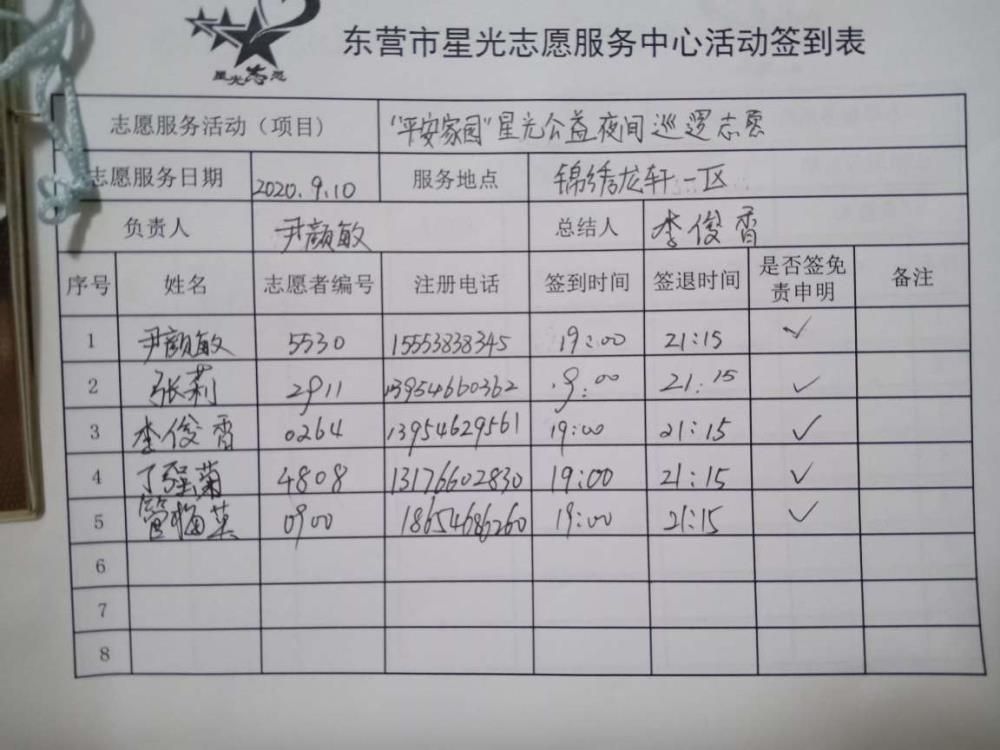 星光志愿
东营市星光志愿服务中心活动签到表
志愿服务活动（项目） "平安家园"星光公益夜间巡逻志愿
志愿服务日期 2020.9.10 服务地点 锦绣龙轩一区
负责人 尹颜敏 总结人 李俊香
序号 姓名 志愿者编号 注册电话 签到时间 签退时间 是否签免责申明 备注
1 尹颜敏 5530 15553838345 19:00 21:15 ✓
2 张莉 2911 13954660362 19:00 21:15 ✓
3 李俊香 0264 13954629561 19:00 21:15 ✓
4 丁强菊 4808 13176602830 19:00 21:15 ✓
5 管梅英 0900 18654686260 19:00 21:15 ✓
6
7
8